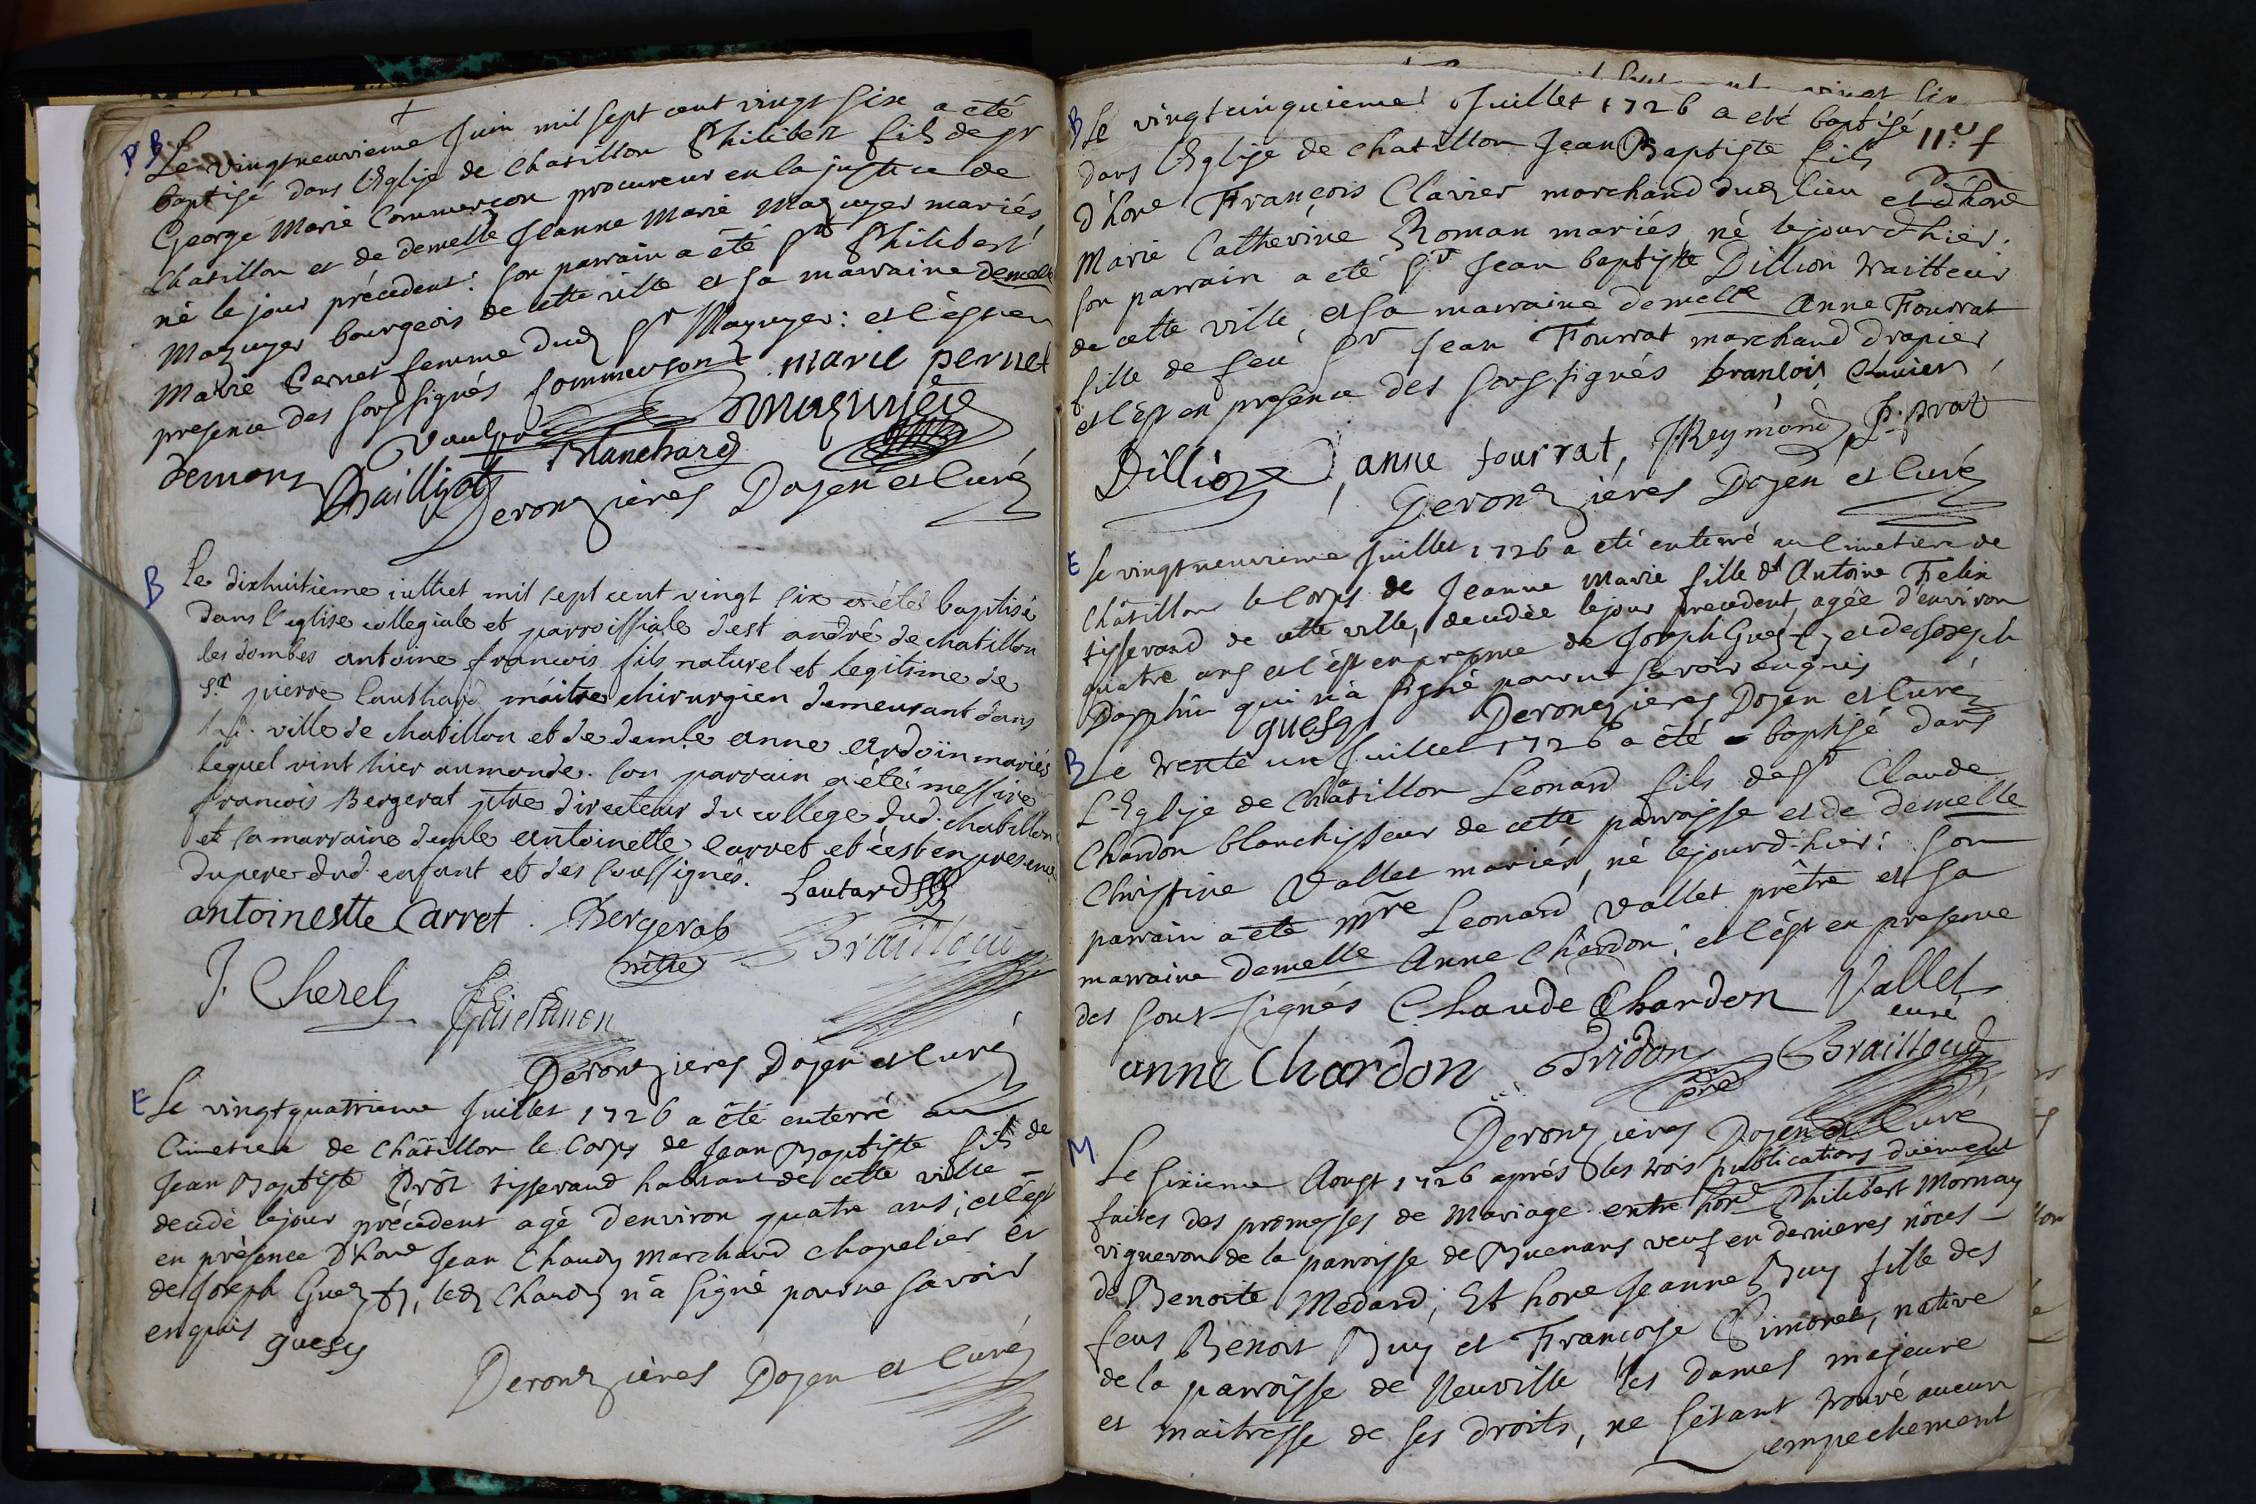 +
B Le vingtneuvieme Juin mil sept cent vingt six a eté
baptisé dans l'Eglise de Chatillon Philibert fils de sr
George Marie Commerçon procureur en la justice de
Chatillon et de demelle Jeanne Marie Mazuyer mariés
né le jour précédent: son parrain a été sr Philibert
Mazuyer bourgeois de cette ville et sa marraine demelle
Marie Pernet femme dud sr Mazuyer: et c'est en
presence des soussignés Commerson marie pernet
demons Blanchard
Bailliod Deronzieres Doyen et Curé
B Le dixhuitieme iulliet mil sept cent vingt six a été baptisé
dans l'eglise collegiale et parroissiale de st andré de chatillon
les dombes antoine francois fils naturel et legitime de
sr. pierre Lauthard maitre chirurgien demeurant dans
lad. ville de chatillon et de demle anne Ardoin mariés
lequel vint hier au monde. son parrain a été messire
francois Bergerat ptre directeur du college dud. chatillon
et sa marraine demle antoinette Carret et c'est en presence
du pere dud. enfant et des soussignés. Lautard
antoinestte Carret. Bergerat
J. Cherel
Deronzieres Doyen et Curé
E Le vingtquatrieme Juillet 1726 a été enterré au
Cimetiere de Chatillon le Corps de Jean Baptiste fils de
Jean Baptiste Prôt tisserand habitant de cette ville
decedé le jour précédent agé d'environ quatre ans; et c'est
en présence d'hone Jean Chaudy Marchand chapelier et
de Joseph Guezty, led Chaudy n'a signé pour ne savoir
enquis
guesty
Deronzières Doyen et Curé
B Le vingtcinquieme Juillet 1726 a eté baptisé
11e f
dans l'Eglise de Chatillon Jean Baptiste fils
d'hone François Clavier marchand dud lieu et d'hone
Marie Catherine Roman mariés né le jour d'hier.
son parrain a eté sr Jean baptiste Dillion traitteur
de cette ville, et sa marraine demelle Anne Fourrat
fille de feu sr Jean Fourrat marchand drapier
et c'est en presence des soussignés francois Clavier
Dillion, anne fourrat, JReymond,
Deronzières Doyen et Curé
E Le vingtneuvieme Juillet 1726 a eté enterré au Cimetiere de
Châtillon le Corps de Jeanne Marie fille d'Antoine Felix
tisserand de cette ville, decedée le jour precedent, agée d'environ
quatre ans et c'est en presence de Joseph Guezty et de Joseph
Dauphin qui n'a signé pour ne savoir enquis
guesty Deronzieres Doyen et Curé
B Le trente un Juillet 1726 a été baptisé dans
L'Eglise de Châtillon Leonard fils de sr Claude
Chardon blanchisseur de cette parroisse et de demelle
Christine Vallet mariés, né le jour d'hier: son
parrain a eté Mre Leonard Vallet prêtre et sa
marraine demelle Anne Chardon: et c'est en presence
des sous-signés Claude Chardon Vallet
curé
anne Chardon Pridon Brailloud
ptre
Deronzieres Doyen et Curé
M Le sixieme Aoust 1726 aprés les trois publications duement
faites des promesses de Mariage entre hone Philibert Mornay
vigneron de la parroisse de Buenans veuf en dernieres nôces
de Benoite Medard; Et hone Jeanne Buy fille des
feus Benoit Buy et Francoise Simonet, native
de la parroisse de Neuville les dames majeure
et maitresse de ses droits, ne s'étant trouvé aucun
empechement